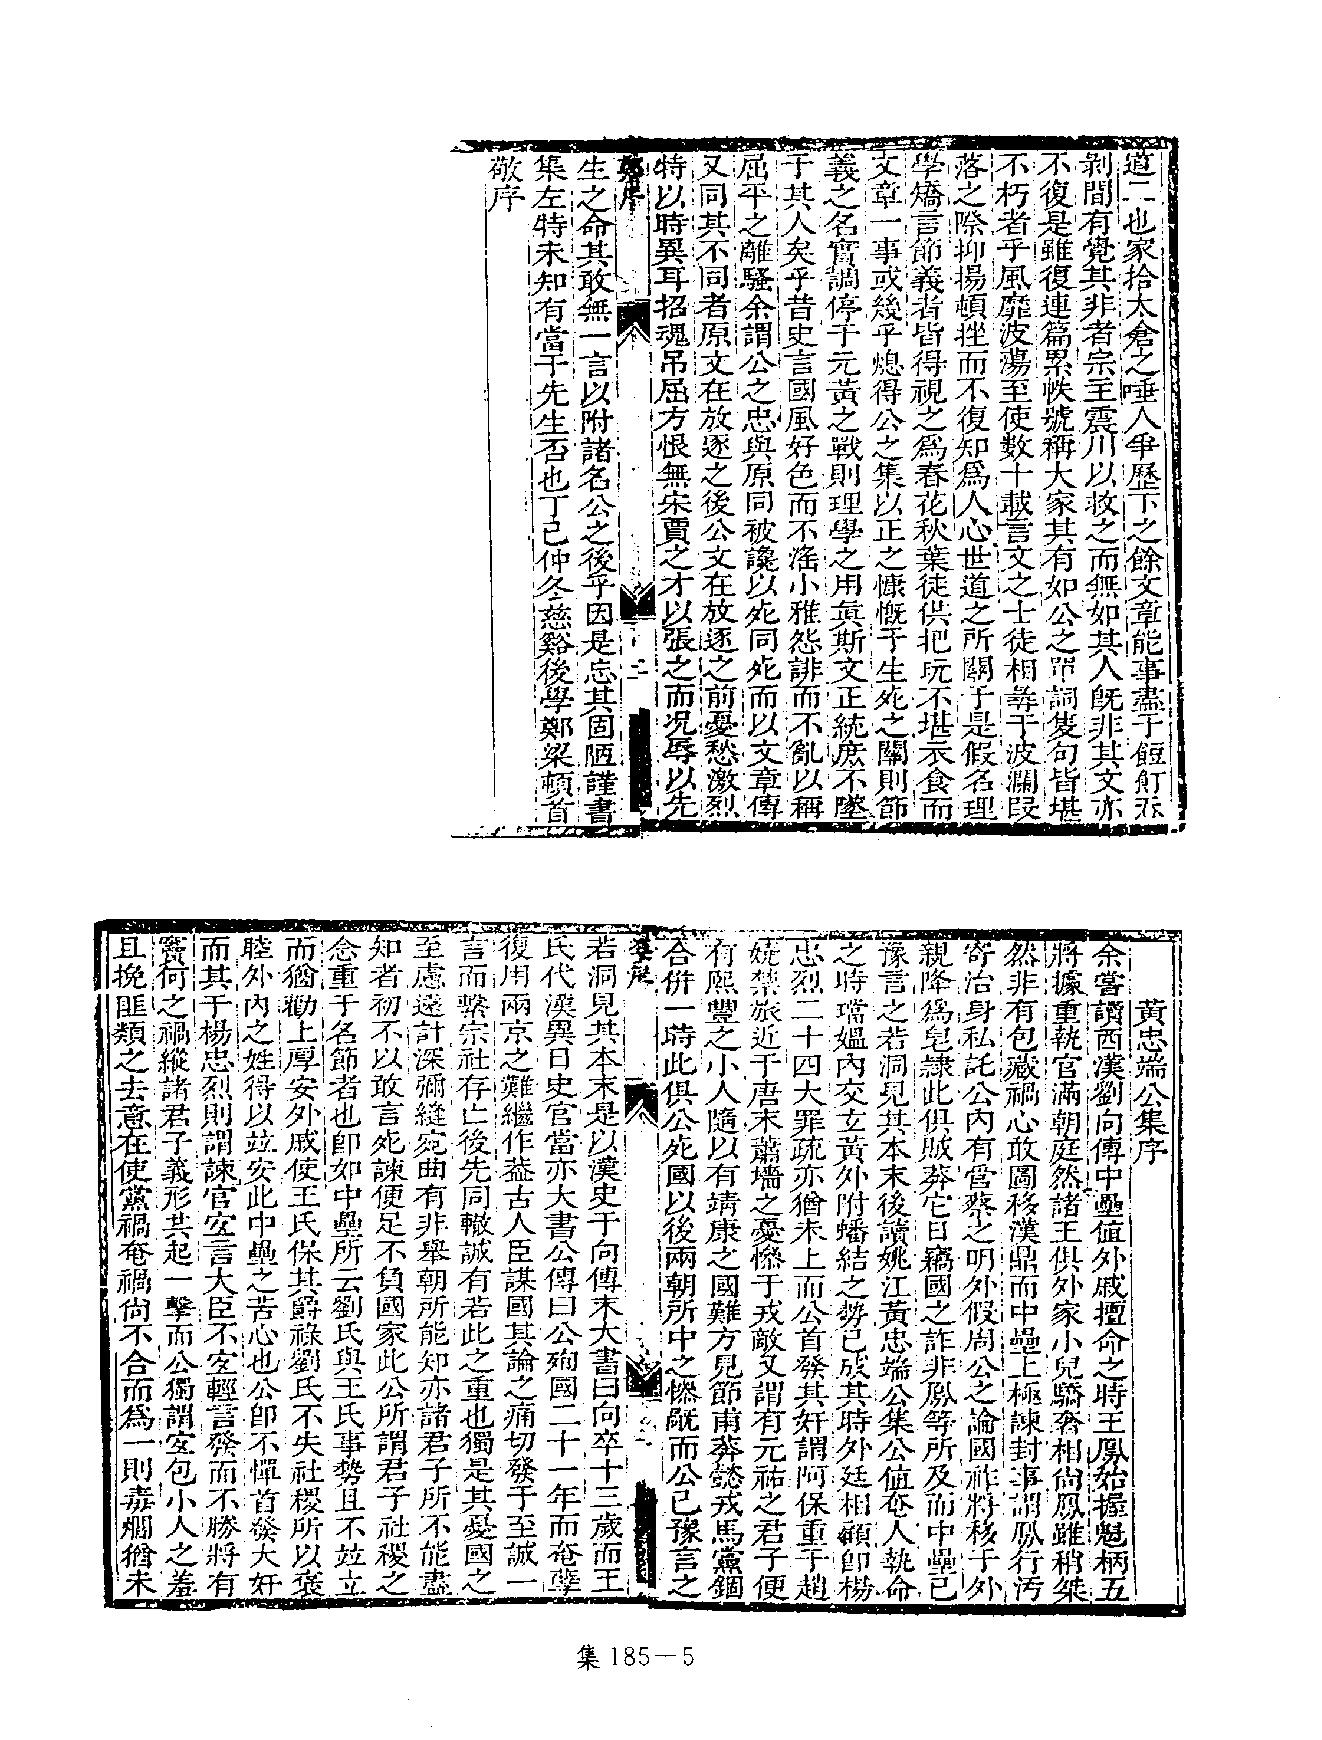 道二也家拾太倉之唾人爭歷下之餘文章能事盡于餖飣吞
剝間有覺其非者宗主震川以救之而無如其人旣非其文亦
不復是雖復連篇累帙號稱大家其有如公之單詞隻句皆堪
不朽者乎風靡波蕩至使數十載言文之士徒相尋于波瀾段
落之際抑揚頓挫而不復知爲人心世道之所關于是假名理
學矯言節義者皆得視之爲春花秋葉徒供把玩不堪衣食而
文章一事或幾乎熄得公之集以正之慷慨于生死之關則節
義之名實調停于元黃之戰則理學之用眞斯文正統庶不墜
于其人矣乎昔史言國風好色而不淫小雅怨誹而不亂以稱
屈平之離騷余謂公之忠與原同被讒以死同死而以文章傳
又同其不同者原文在放逐之後公文在放逐之前憂愁激烈
特以時異耳招魂吊屈方恨無宋賈之才以張之而況辱以先
鄭序
二
生之命其敢無一言以附諸名公之後乎因是忘其固陋謹書
集左特未知有當于先生否也丁巳仲冬慈谿後學鄭梁頓首
敬序
黃忠端公集序
余嘗讀西漢劉向傳中壘値外戚擅命之時王鳳始握魁柄五
將據重執官滿朝庭然諸王供外家小兒驕奢相尚鳳雖稍桀
然非有包藏禍心敢圖移漢鼎而中壘上極諫封事謂鳳行汚
寄治身私託公內有管蔡之明外假周公之論國祚將移于外
親降爲皂隸此俱賊莽它日竊國之詐非鳳等所及而中壘已
豫言之若洞見其本末後讀姚江黃忠端公集公値奄人執命
之時璫媼內交玄黃外附蟠結之勢已成其時外廷相顧卽楊
忠烈二十四大罪疏亦猶未上而公首發其奸謂阿保重于趙
嬈禁旅近于唐末蕭墻之憂慘于戎敵又謂有元祐之君子便
有熙豐之小人隨以有靖康之國難方見節甫莽懿戎馬黨錮
合併一時此俱公死國以後兩朝所中之慘旤而公已豫言之
李序
一
若洞見其本末是以漢史于向傳末大書曰向卒十三歲而王
氏代漢異日史官當亦大書公傳曰公殉國二十一年而奄孽
復用兩京之難繼作葢古人臣謀國其論之痛切發于至誠一
言而繫宗社存亡後先同轍誠有若此之重也獨是其憂國之
至慮遠計深彌縫宛曲有非舉朝所能知亦諸君子所不能盡
知者初不以敢言死諫便足不負國家此公所謂君子社稷之
念重于名節者也卽如中壘所云劉氏與王氏事勢且不竝立
而猶勸上厚安外戚使王氏保其爵祿劉氏不失社稷所以褒
睦外內之姓得以竝安此中壘之苦心也公卽不憚首發大奸
而其于楊忠烈則謂諫官宜言大臣不宜輕言發而不勝將有
竇何之禍縱諸君子義形共起一擊而公獨謂宜包小人之羞
且挽匪類之去意在使黨禍奄禍尙不合而爲一則毒燗猶未
集185－5